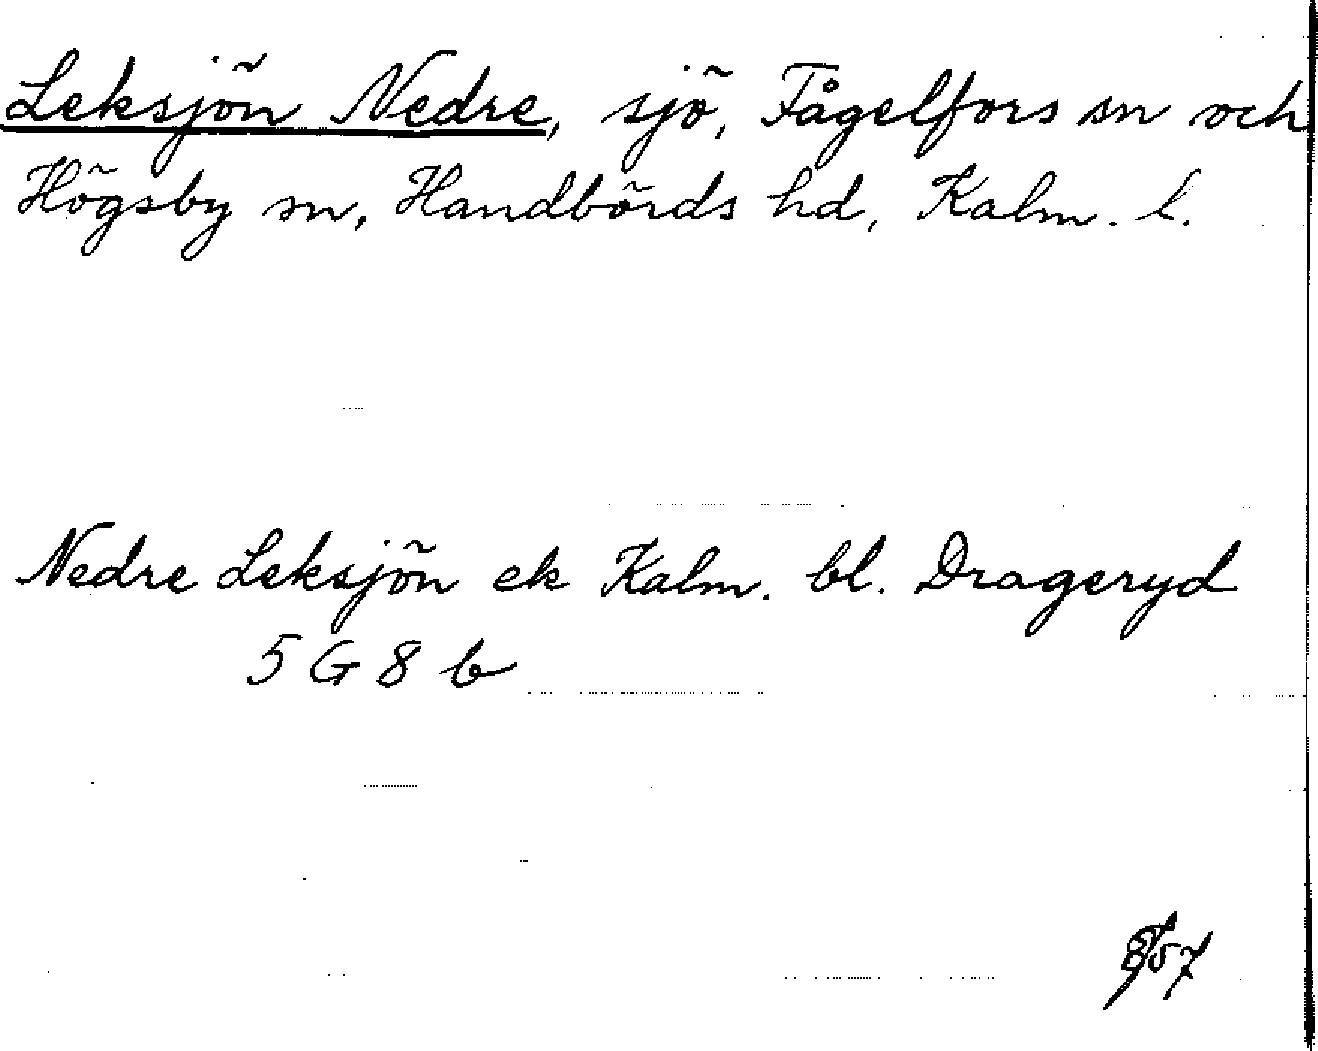 Leksjön Nedre, sjö, Fågelfors sn och
Högsby sn, Handbörds hd, Kalm. l.
Nedre Leksjön ek Kalm. bl. Drageryd
5 G 8 b